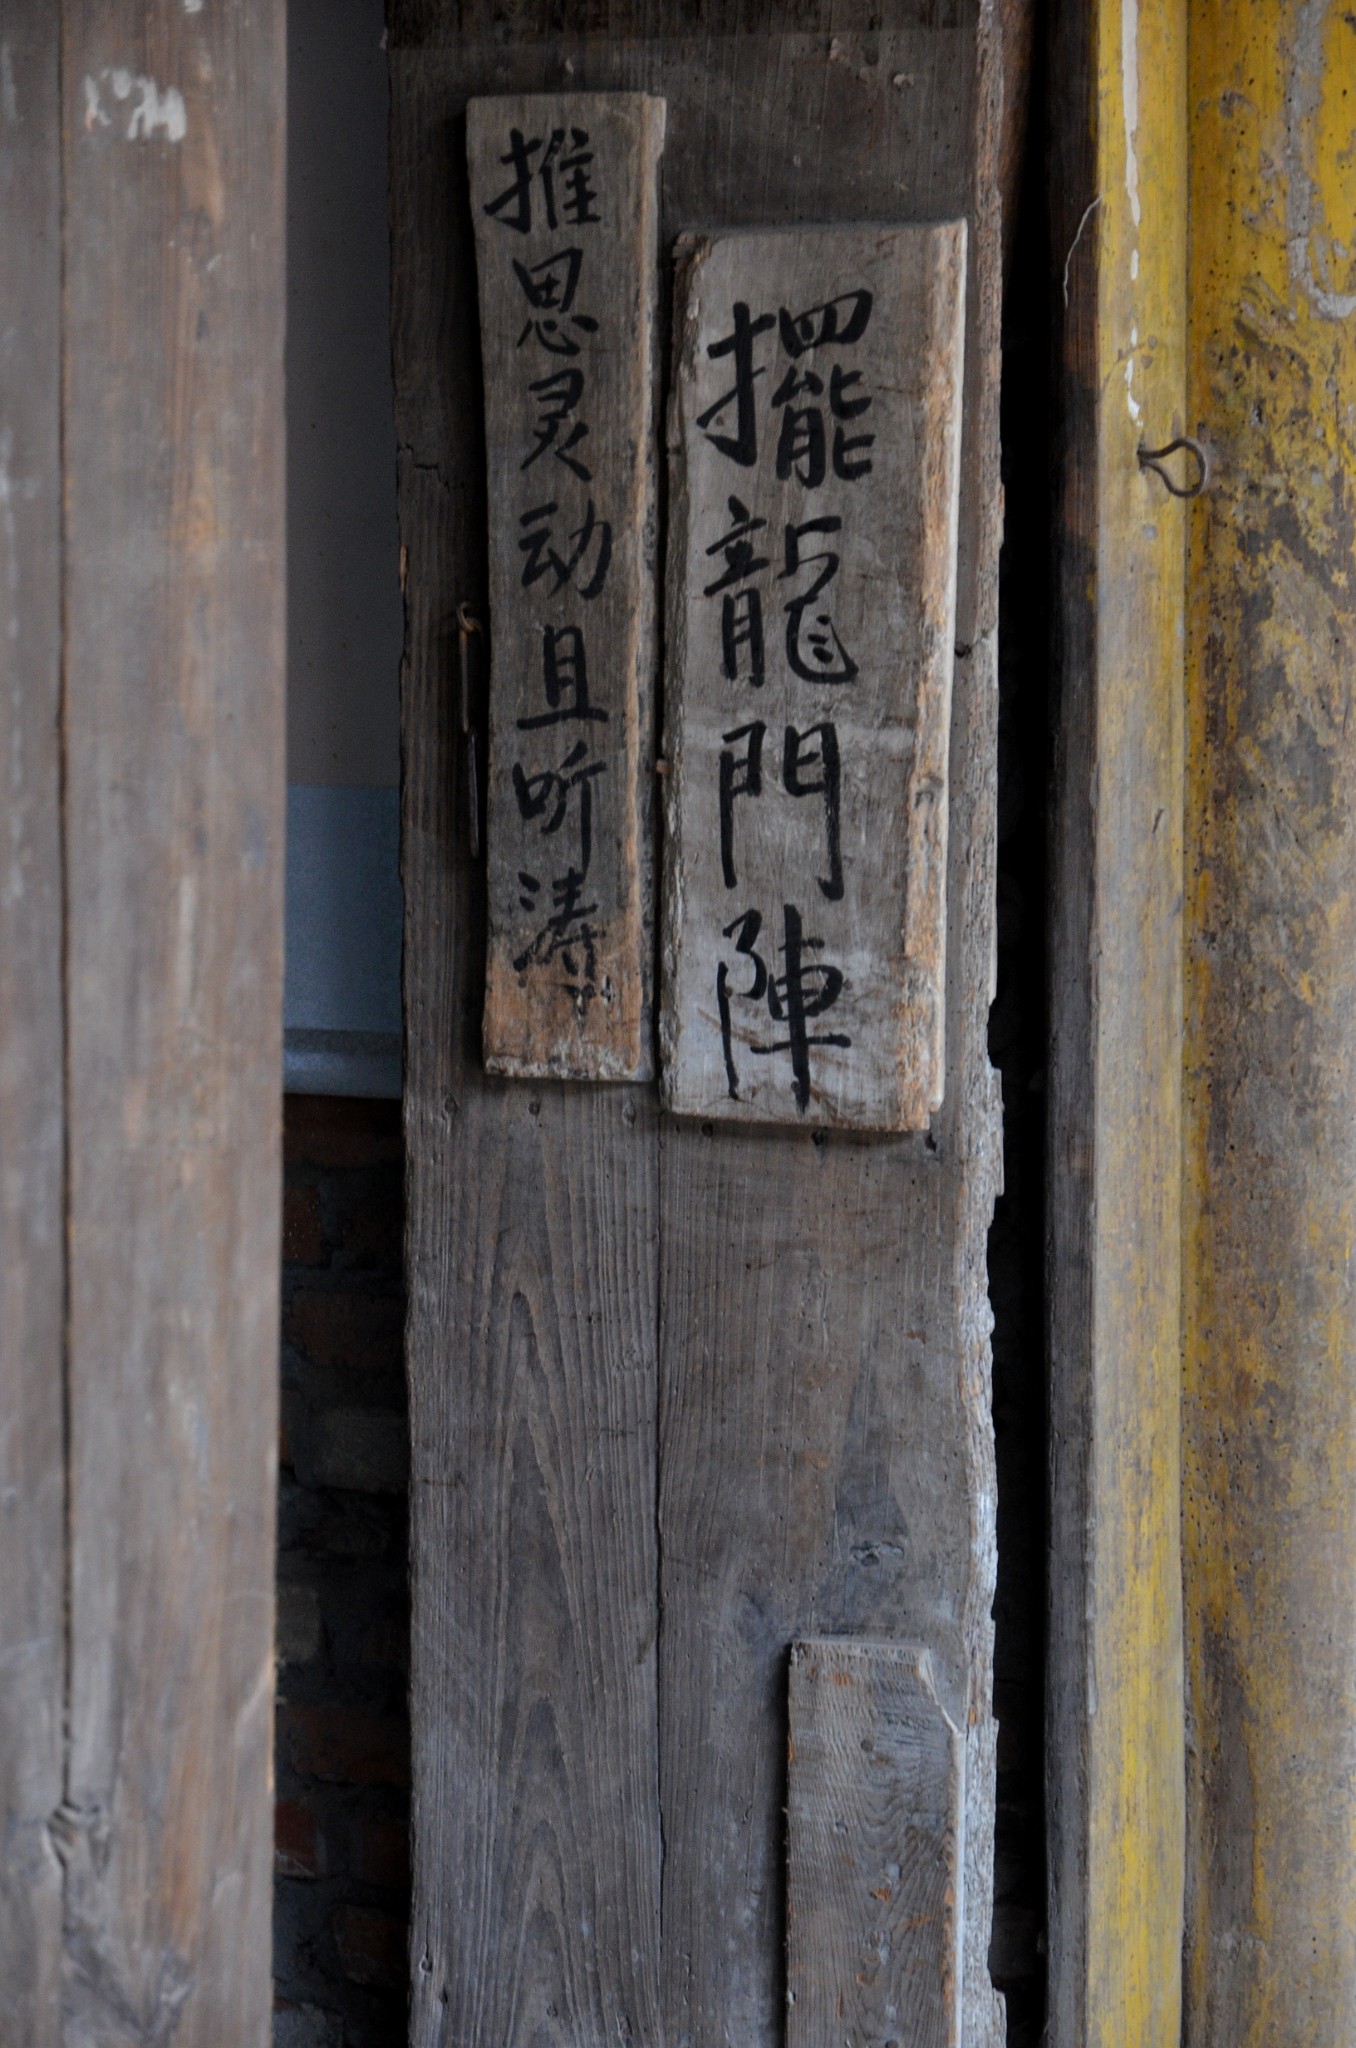 擺龍門陣
推思灵动且听涛